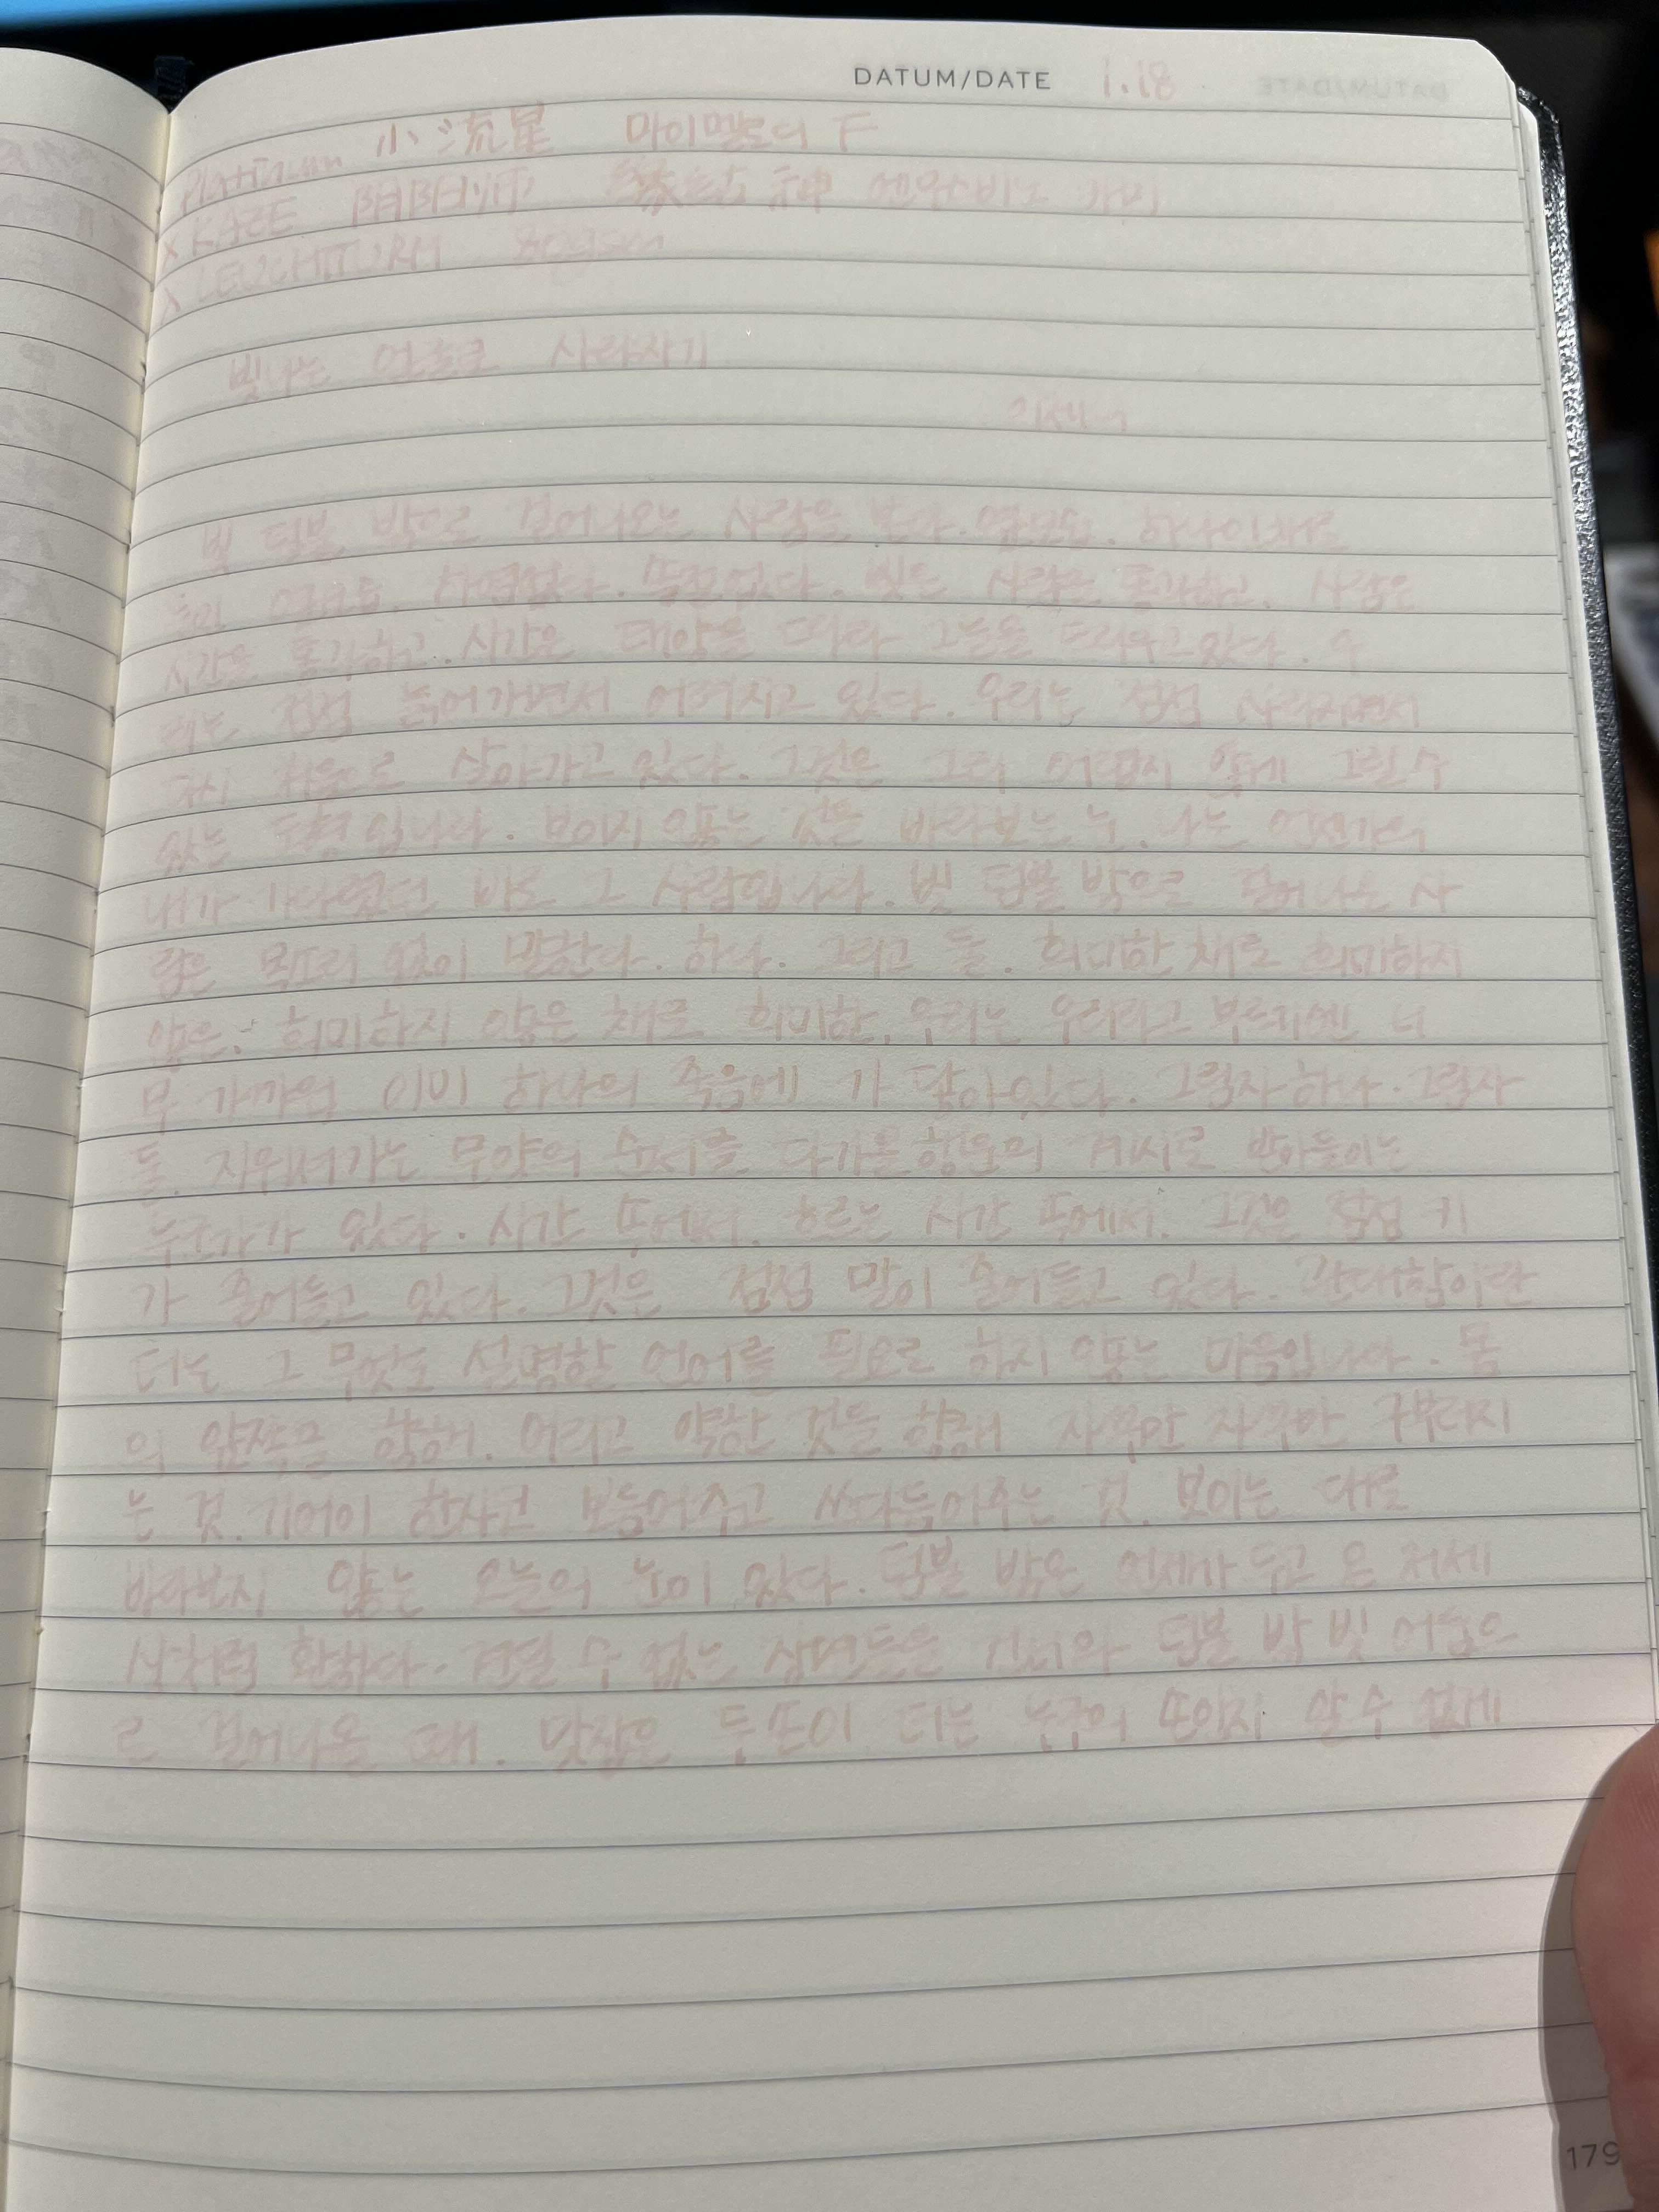 DATUM/DATE 1.18
Platinum 小流星 마이멜로디 F
x KAZE 陰陽师 縁結神 엔무스비노 카미
x LEUCHTTURM 80gsm
빛나는 얼굴로 사라지기
이제니
빛 덤불 밖으로 걸어나오는 사람을 본다. 하나인 채로
둘인 사람은 통과하고. 사람은
시간을 통과하고. 시간은 태양을 따라 그늘을 드리우고 있다. 우
리는 점점 늙어가면서 어려지고 있다. 우리는 점점 사라지면서
다시 처음으로 살아가고 있다. 그것은 그리 어렵지 않게 그릴 수
있는 도형입니다. 보이지 않는 것을 바라보는 눈. 나는 언젠가의
내가 기다렸던 바로 그 사람입니다. 빛 덤불 밖으로 걸어나오는 사
람은 목소리 없이 말한다. 하나. 그리고 둘. 희미한 채로 희미하지
않은. 희미하지 않은 채로 희미한. 우리는 우리라고 부르기엔 너
무 가까워 이미 하나의 죽음에 가 닿아있다. 그림자 하나. 그림자
둘. 지워져가는 모양의 순서를 다가올 행운의 계시로 받아들이는
누군가가 있다. 시간 속에서. 흐르는 시간 속에서. 그것은 점점 키
가 줄어들고 있다. 그것은 점점 말이 줄어들고 있다. 관대함이란
더는 그 무엇도 설명할 언어를 필요로 하지 않는 마음입니다. 몸
의 앞쪽을 향해. 어리고 약한 것을 향해 자꾸만 자꾸만 구부러지
는 것. 기어이 한사코 보듬어주고 쓰다듬어주는 것. 보이는 대로
바라보지 않는 오늘의 눈이 있다. 덤불 밖은 언젠가 두고 온 저세
상처럼 환하다. 견딜 수 없는 장면들을 지나와 덤불 밖 빛 어둠으
로 걸어나올 때. 맞잡은 두 손이 더는 누구의 손인지 알 수 없게
179